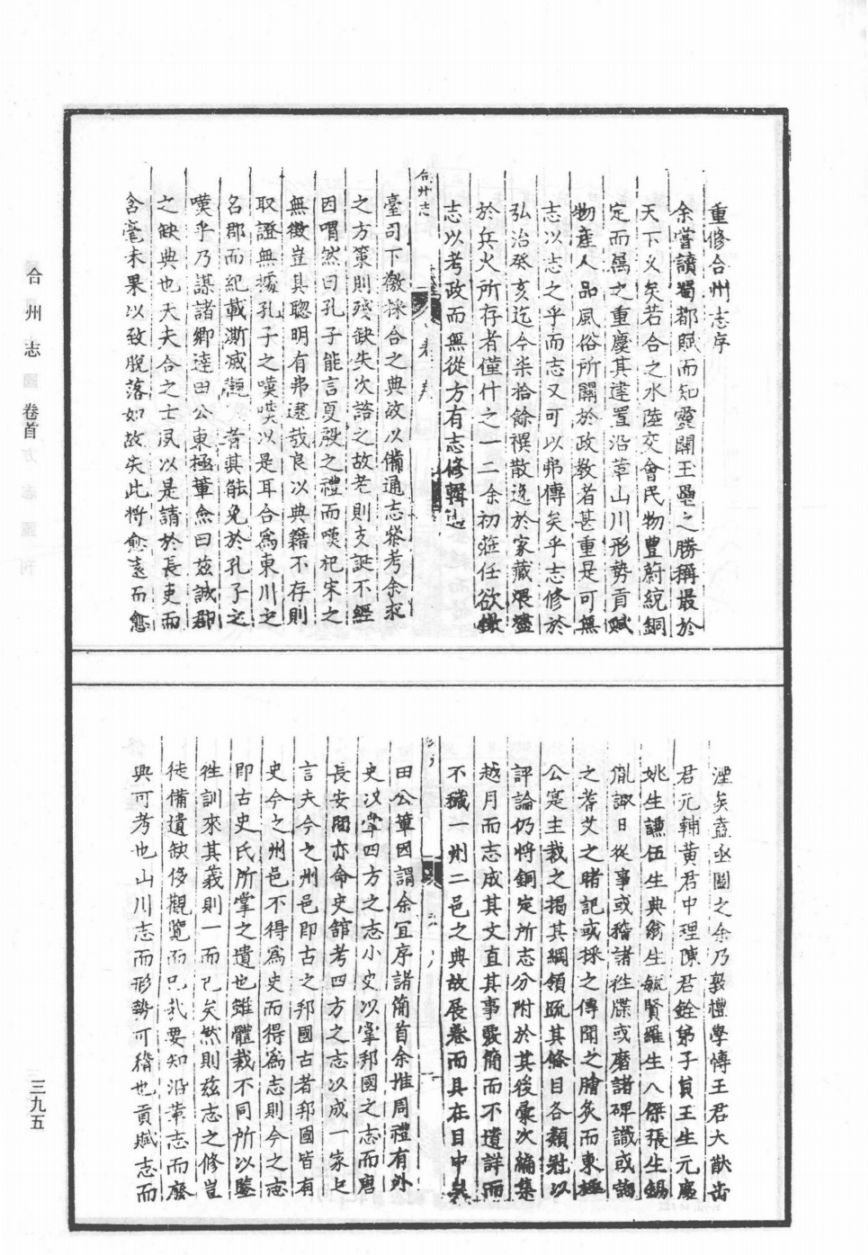 重修合州志序
余嘗讀蜀都賦而知靈關玉壘之勝稱最於
天下久矣若合之水陸交會民物豐蔚統銅
定而屬之重慶其建置沿革山川形勢貢賦
物產人品風俗所關於政教者甚重是可無
志以志之乎而志又可以弗傳矣乎志修於
弘治癸亥迄今柒拾餘禩散逸於家藏煨燼
於兵火所存者僅什之一二余初蒞任欲
志以考政而無從方有志修輯適
合州志
臺司下檄採合之典故以備通志參考余求
之方策則殘缺失次諮之故老則支誕不經
因喟然曰孔子能言夏殷之禮而嘆杞宋之
無徵豈其聰明有弗逮哉良以典籍不存則
取證無據孔子之嘆嘆以是耳合為東川之
名郡而紀載澌滅若其能免於孔子之
嘆乎乃謀諸鄉達田公東極輩僉曰茲誠郡
之缺典也大夫合之士夙以是請於長吏而
含毫未果以致脫落如故失此將愈遠而愈
湮矣盍亟圖之余乃敦禮學博王君大猷
君元輔黃君中理陳君銓弟子員王生元
姚生謙伍生典翁生毓賢羅生八傑張生錫
諏日從事或稽諸往牒或磨諸碑識或詢
之耆艾之睹記或採之傳聞之膾炙而東極
公寔主裁之揭其綱領疏其條目各類附以
評論仍將銅定所志分附於其後彙次編集
越月而志成其文直其事覈簡而不遺詳而
不穢一州二邑之典故展卷而具在目中矣
田公輩因謂余宜序諸簡首余惟周禮有外
史汉掌四方之志小史以掌邦國之志而唐
長安間亦命史館考四方之志以成一家之
言夫今之州邑即古之邦國古者邦國皆有
史今之州邑不得為史而得為志則今之志
即古史氏所掌之遺也雖體裁不同所以鑒
往訓來其義則一而已矣然則茲志之修豈
徒備遺缺侈觀覽而已哉要知沿革志而廢
興可考也山川志而形勢可稽也貢賦志而
合州志 卷首
三九五